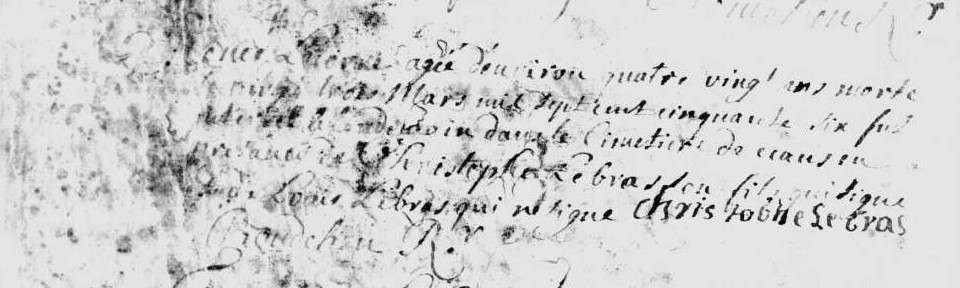 agée d'environ quatre vingt ans morte
vingt trois Mars mil sept cent cinquante six fut
le lendemain dans le Cimetiere de ceans en
presance de Christophe Le bras son fils qui signe
et de Louis Le bras qui ne signe Christophe Le bras
Rr